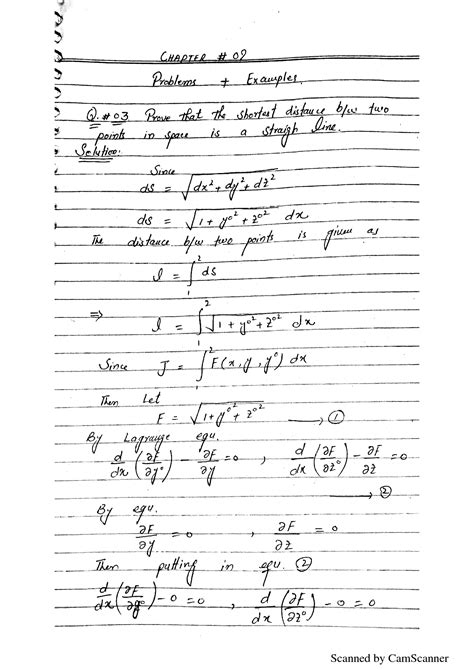 CHAPTER # 09
Problems + Examples
Q.#03 Prove that the shortest distance b/w two
points in space is a straigh line.
Solution:
Since
ds = √dx²+dy²+dz²
ds = √1+y°²+z°² dx
The distance b/w two points is given as
l = ∫₁² ds
⇒ l = ∫₁² √1+y°²+z°² dx
Since J = ∫₁² F(x,y,y°) dx
Then Let
F = √1+y°²+z°² → ①
By Lagrange equ.
d/dx (∂F/∂y°) - ∂F/∂y = 0 , d/dx (∂F/∂z°) - ∂F/∂z = 0
→ ②
By equ.
∂F/∂y = 0 , ∂F/∂z = 0
Then putting in equ. ②
d/dx (∂F/∂y°) - 0 = 0 , d/dx (∂F/∂z°) - 0 = 0
Scanned by CamScanner